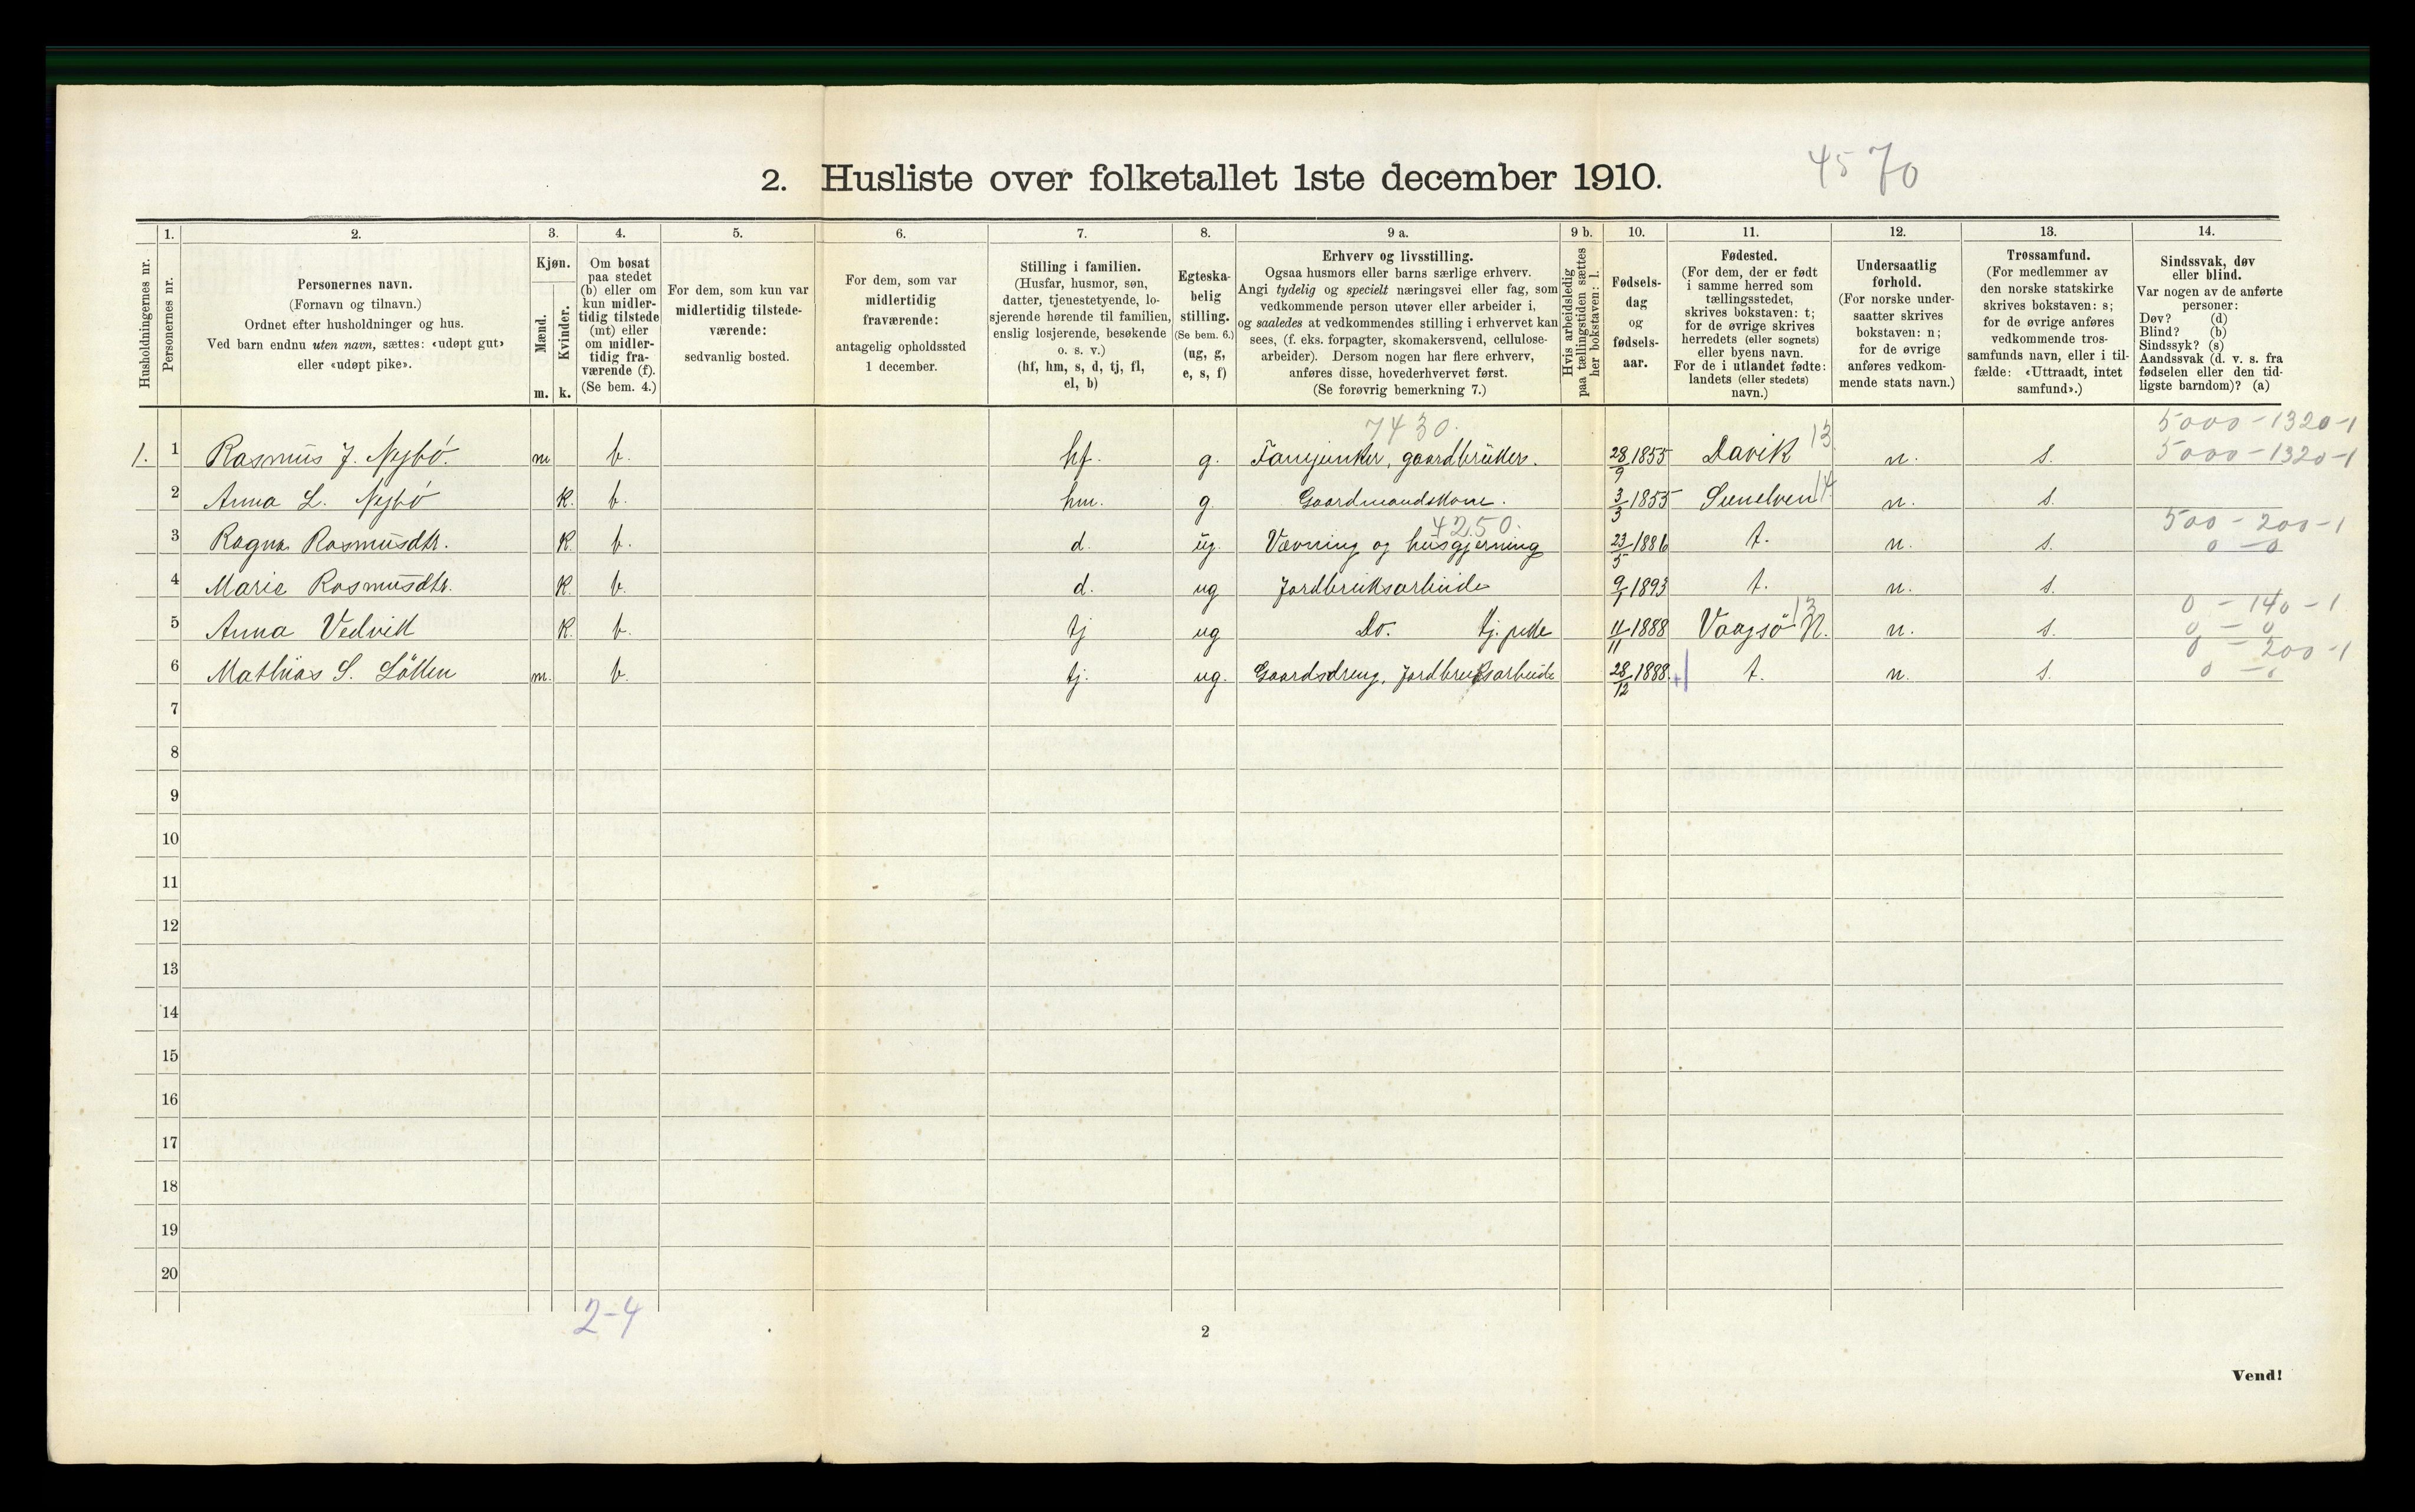 2. Husliste over folketallet 1ste december 1910.
45 70
Husholdningernes nr.
1.
Personernes nr.
2.
Personernes navn.
(Fornavn og tilnavn.)
Ordnet efter husholdninger og hus.
Ved barn endnu uten navn, sættes: «udøpt gut»
eller «udøpt pike».
3.
Kjøn.
Mænd.
Kvinder.
m. k.
4.
Om bosat
paa stedet
(b) eller om
kun midler-
tidig tilstede
(mt) eller
om midler-
tidig fra-
værende (f).
(Se bem. 4.)
5.
For dem, som kun var
midlertidig tilstede-
værende:
sedvanlig bosted.
6.
For dem, som var
midlertidig
fraværende:
antagelig opholdssted
1 december.
7.
Stilling i familien.
(Husfar, husmor, søn,
datter, tjenestetyende, lo-
sjerende hørende til familien,
enslig losjerende, besøkende
o. s. v.)
(hf, hm, s, d, tj, fl,
el, b)
8.
Egteska-
belig
stilling.
(Se bem. 6.)
(ug, g,
e, s, f)
9 a.
Erhverv og livsstilling.
Ogsaa husmors eller barns særlige erhverv.
Angi tydelig og specielt næringsvei eller fag, som
vedkommende person utøver eller arbeider i,
og saaledes at vedkommendes stilling i erhvervet kan
sees, (f. eks. forpagter, skomakersvend, cellulose-
arbeider). Dersom nogen har flere erhverv,
anføres disse, hovederhvervet først.
(Se forøvrig bemerkning 7.)
9 b.
Hvis arbeidsledig
paa tællingstiden sættes
her bokstaven: l.
10.
Fødsels-
dag
og
fødsels-
aar.
11.
Fødested.
(For dem, der er født
i samme herred som
tællingsstedet,
skrives bokstaven: t;
for de øvrige skrives
herredets (eller sognets)
eller byens navn.
For de i utlandet fødte:
landets (eller stedets)
navn.)
12.
Undersaatlig
forhold.
(For norske under-
saatter skrives
bokstaven: n;
for de øvrige
anføres vedkom-
mende stats navn.)
13.
Trossamfund.
(For medlemmer av
den norske statskirke
skrives bokstaven: s;
for de øvrige anføres
vedkommende tros-
samfunds navn, eller i til-
fælde: «Uttraadt, intet
samfund».)
14.
Sindssvak, døv
eller blind.
Var nogen av de anførte
personer:
Døv? (d)
Blind? (b)
Sindssyk? (s)
Aandssvak (d. v. s. fra
fødselen eller den tid-
ligste barndom)? (a)
7430. 5000-1320-1
1. 1 Rasmus J. Nybö. m b. hf. g. Fanejunker, gaardbruker. 28/9 1855 Davik 13 n. s. 5000-1320-1
2 Anna L. Nybö k. b. hm. g. Gaardmandskone. 3/3 1855 Sunelven 14 n. s.
4250. 500-200-1
3 Ragna Rasmusdtr. k. b. d. ug. Vævning og husgjerning 23/5 1886 t. n. s. 0-0
4 Marie Rasmusdtr. k. b. d. ug Jordbruksarbeide 9/1 1893 t. n. s.
0-140-1
5 Anna Vedvik k. b. tj ug Do. tj. pike 11/11 1888 Vaagsö N. 13 n. s. 0-0
0-200-1
6 Mathias S. Lötten m. b. tj. ug. Gaardsdreng, Jordbruksarbeide 28/12 1888. t. n. s. 0-0
7
8
9
10
11
12
13
14
15
16
17
18
19
20
2-4
2
Vend!